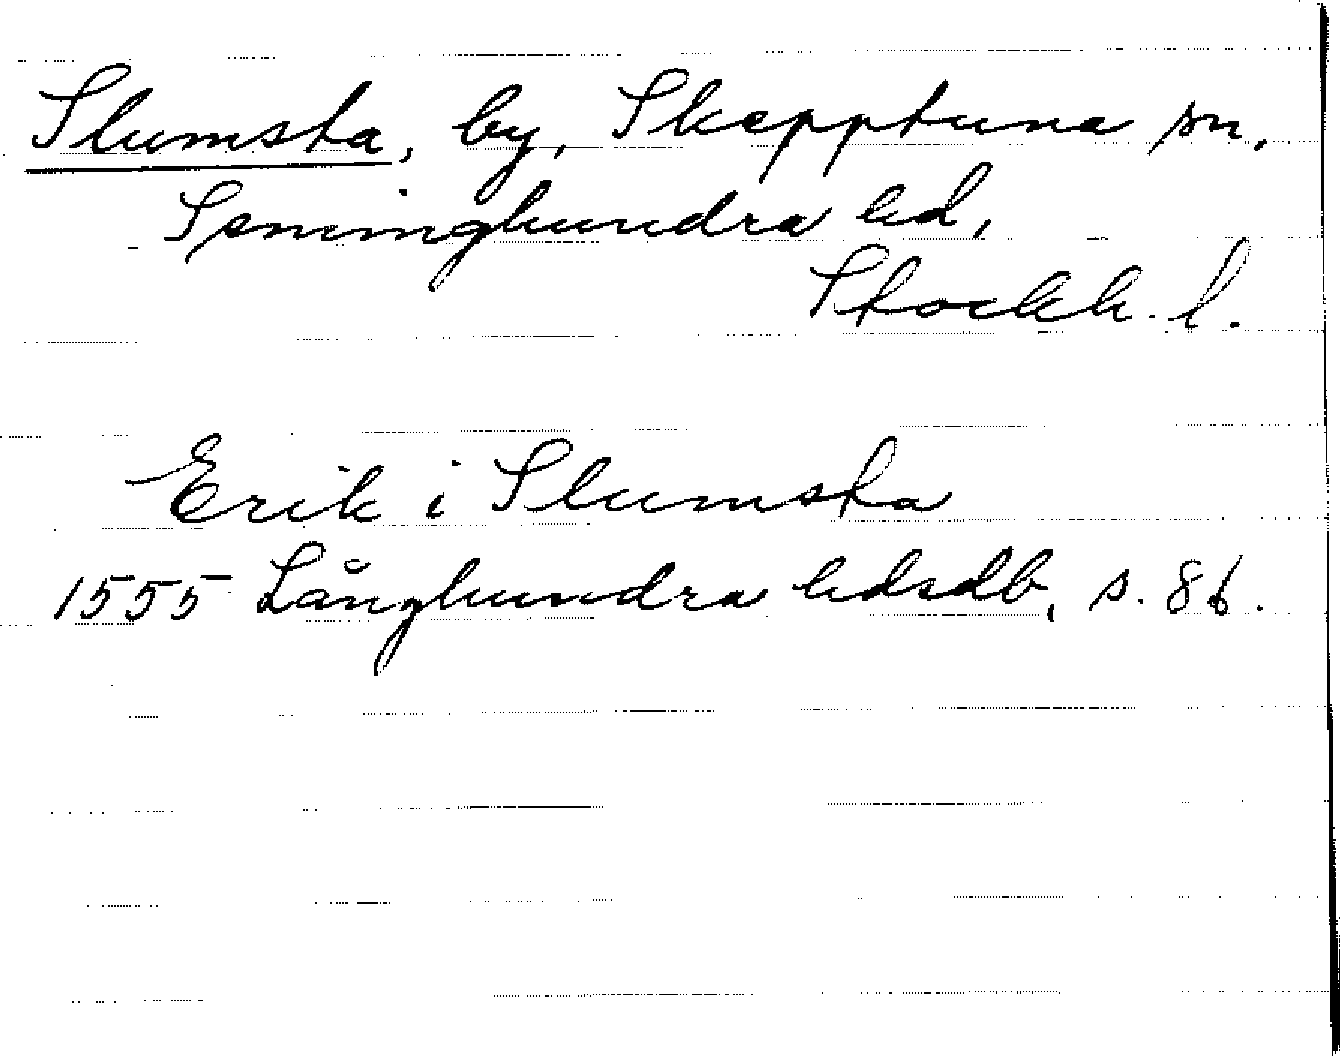 Slumsta, by, Skepptuna sn,
Seminghundra hd,
Stockh. l.
Erik i Slumsta
1555 Långhundra hdsdb, s. 86.